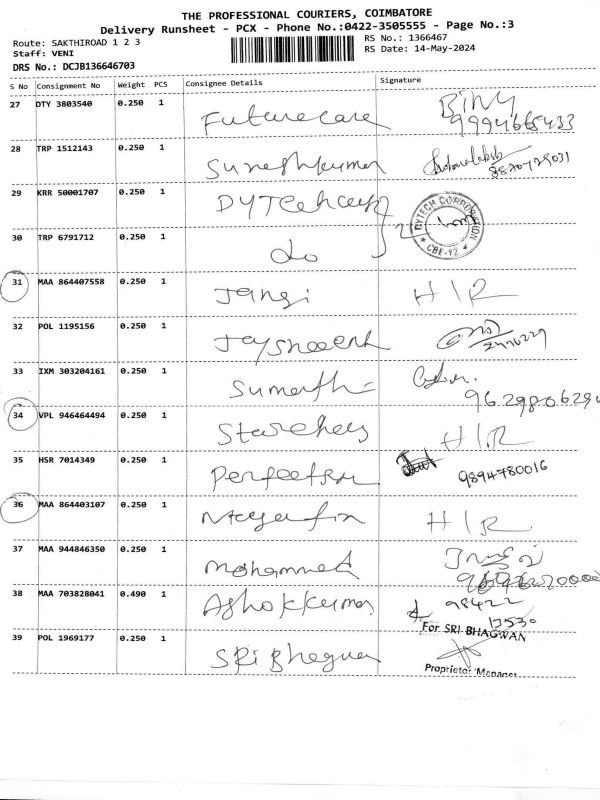 THE PROFESSIONAL COURIERS, COIMBATORE
Delivery Runsheet - PCX - Phone No.:0422-3505555 - Page No.:3
Route: SAKTHIROAD 1 2 3
Staff: VENI
RS No.: 1366467
RS Date: 14-May-2024
DRS No.: DCJB136646703
S No Consignment No Weight PCS Consignee Details Signature
27 OTY 3803540 0.250 1 Futurecare BINY
9994665433
28 TRP 1512143 0.250 1 Sureshkumar
8870729031
29 KRR 50001707 0.250 1 DYTech
DYTECH CORPORATION
* CBE-12 *
30 TRP 6791712 0.250 1 do
31 MAA 864407558 0.250 1 Jangi H/R
32 POL 1195156 0.250 1
33 IXM 303204161 0.250 1 Sumathi
34 VPL 946464494 0.250 1 H/R
35 HSR 7014349 0.250 1
9894780016
36 MAA 864403107 0.250 1 H/R
37 MAA 944846350 0.250 1 Mohammed
38 MAA 703828041 0.490 1 Ashokkumar 98422
13530
39 POL 1969177 0.250 1 SRi Bhagwan
For SRI BHAGWAN
Proprietor Manager